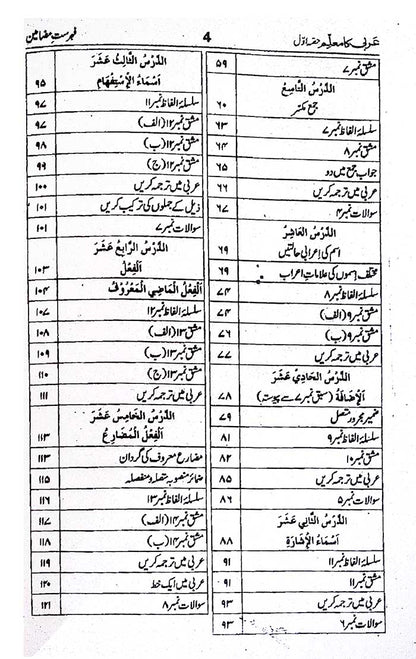 عربی کا معلم حصہ اوّل
4
فہرست مضامین
مشق نمبر ۷ ۵۹
الدَّرْسُ التَّاسِعُ
جمع مکسّر ۶۰
سلسلۂ الفاظ نمبر ۷ ۶۳
مشق نمبر ۸ ۶۴
جواب جمع میں دو ۶۵
عربی میں ترجمہ کریں ۶۶
سوالات نمبر ۴ ۶۷
الدَّرْسُ الْعَاشِرُ
اسم کی اعرابی حالتیں ۶۹
مختلف اسموں کی علامات اعراب ۶۹
سلسلۂ الفاظ نمبر ۸ ۷۴
مشق نمبر ۹ (الف) ۷۴
مشق نمبر ۹ (ب) ۷۶
عربی میں ترجمہ کریں ۷۷
الدَّرْسُ الْحَادِيْ عَشَرَ
اَلْإِضَافَةُ (سبق نمبر ۷ سے پیوستہ) ۷۸
ضمیر مجرور متصل ۷۹
سلسلۂ الفاظ نمبر ۹ ۸۱
مشق نمبر ۱۰ ۸۲
عربی میں ترجمہ کریں ۸۵
سوالات نمبر ۵ ۸۶
الدَّرْسُ الثَّانِي عَشَرَ
اَسْمَاءُ الْإِشَارَةِ ۸۸
سلسلۂ الفاظ نمبر ۱۱ ۹۱
مشق نمبر ۱۱ ۹۱
عربی میں ترجمہ کریں ۹۳
سوالات نمبر ۶ ۹۳
الدَّرْسُ الثَّالِثُ عَشَرَ
اَسْمَاءُ الْإِسْتِفْهَامِ ۹۵
سلسلۂ الفاظ نمبر ۱۱ ۹۷
مشق نمبر ۱۲ (الف) ۹۷
مشق نمبر ۱۲ (ب) ۹۸
مشق نمبر ۱۲ (ج) ۹۹
عربی میں ترجمہ کریں ۱۰۰
ذیل کے جملوں کی ترکیب کریں ۱۰۱
سوالات نمبر ۷ ۱۰۱
الدَّرْسُ الرَّابِعُ عَشَرَ
اَلْفِعْلُ ۱۰۳
اَلْفِعْلُ الْمَاضِي الْمَعْرُوْفُ ۱۰۴
سلسلۂ الفاظ نمبر ۱۲ ۱۰۷
مشق نمبر ۱۳ (الف) ۱۰۸
مشق نمبر ۱۳ (ب) ۱۰۹
مشق نمبر ۱۳ (ج) ۱۱۰
عربی میں ترجمہ کریں ۱۱۱
الدَّرْسُ الْخَامِسُ عَشَرَ
اَلْفِعْلُ الْمُضَارِعُ ۱۱۳
مضارع معروف کی گردان ۱۱۳
ضمائر منصوبہ متصلہ و منفصلہ ۱۱۵
سلسلۂ الفاظ نمبر ۱۳ ۱۱۶
مشق نمبر ۱۴ (الف) ۱۱۷
مشق نمبر ۱۴ (ب) ۱۱۸
عربی میں ترجمہ کریں ۱۱۹
عربی میں ایک خط ۱۲۰
سوالات نمبر ۸ ۱۲۱